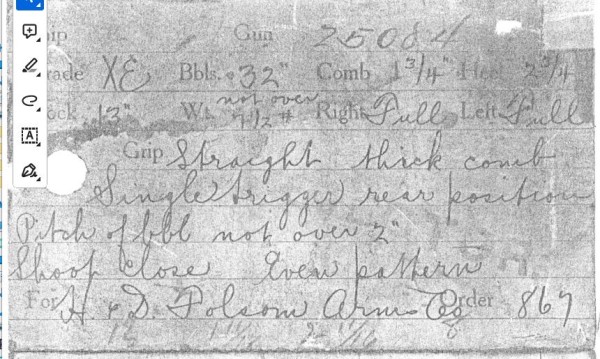 ip Gun 25084
rade XE Bbls. 32" Comb 1 3/4" Heel 2 3/4
ock 13" Wt. not over 7 1/2 # Right Full Left Full
Grip Straight thick comb
Single trigger rear position
Pitch of bbl not over 2"
Shoot close Even pattern
For H. & D. Folsom Arms Co Order 867